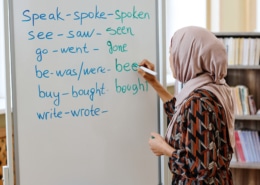 Speak-spoke-spoken
see - saw - seen
go - went - gone
be-was/were- bee
buy - bought - bought
write-wrote-